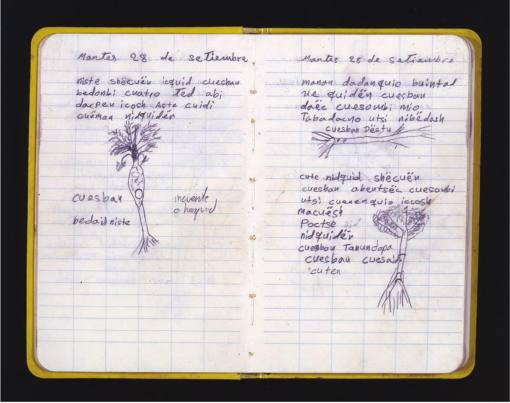 Martes 28 de setiembre
niste shëcuën icquid cuesban
bedanbi cuatro Ted abi
dacpen icosh Aste cuidi
cuëman nidquidër
cuesban
bedaid niste
Martes 28 de setiembre
manan dadanquio buintad
ue quidën cuesban
daëc cuesonbi mio
Tabadacno utsi nibëdosh
cuesban Dëstu
cute nidquid shëcuën
cuesban abentsëc cuesonbi
utsi cuenenquio iccosh
Macuësh
Poctse
nidquidër
cuesban Tanundopa
cuesban cuesaid
cuten